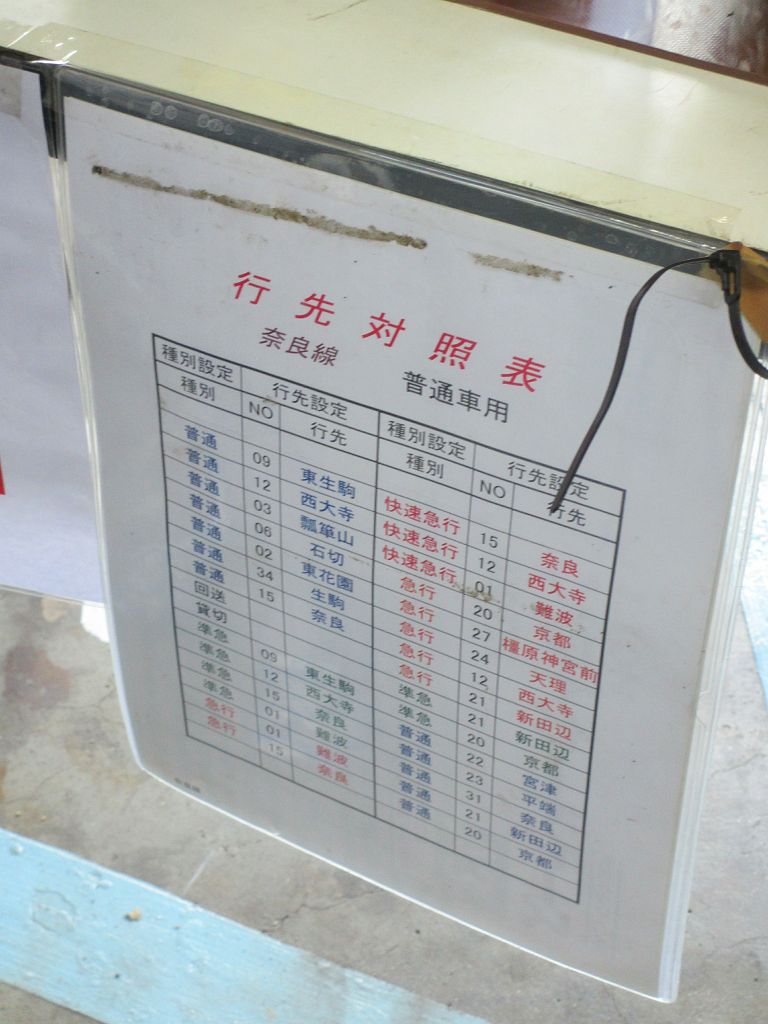 行先対照表
奈良線 普通車用
種別設定 行先設定 種別設定 行先設定
種別 NO 行先 種別 NO 行先
普通 09 東生駒 快速急行 15 奈良
普通 12 西大寺 快速急行 12 西大寺
普通 03 瓢箪山 快速急行 01 難波
普通 06 石切 急行 20 京都
普通 02 東花園 急行 27 橿原神宮前
普通 34 生駒 急行 24 天理
普通 15 奈良 急行 12 西大寺
回送 急行 21 新田辺
貸切 準急 21 新田辺
準急 09 東生駒 準急 20 京都
準急 12 西大寺 普通 22 宮津
準急 15 奈良 普通 23 平端
準急 01 難波 普通 31 奈良
急行 01 難波 普通 21 新田辺
急行 15 奈良 普通 20 京都